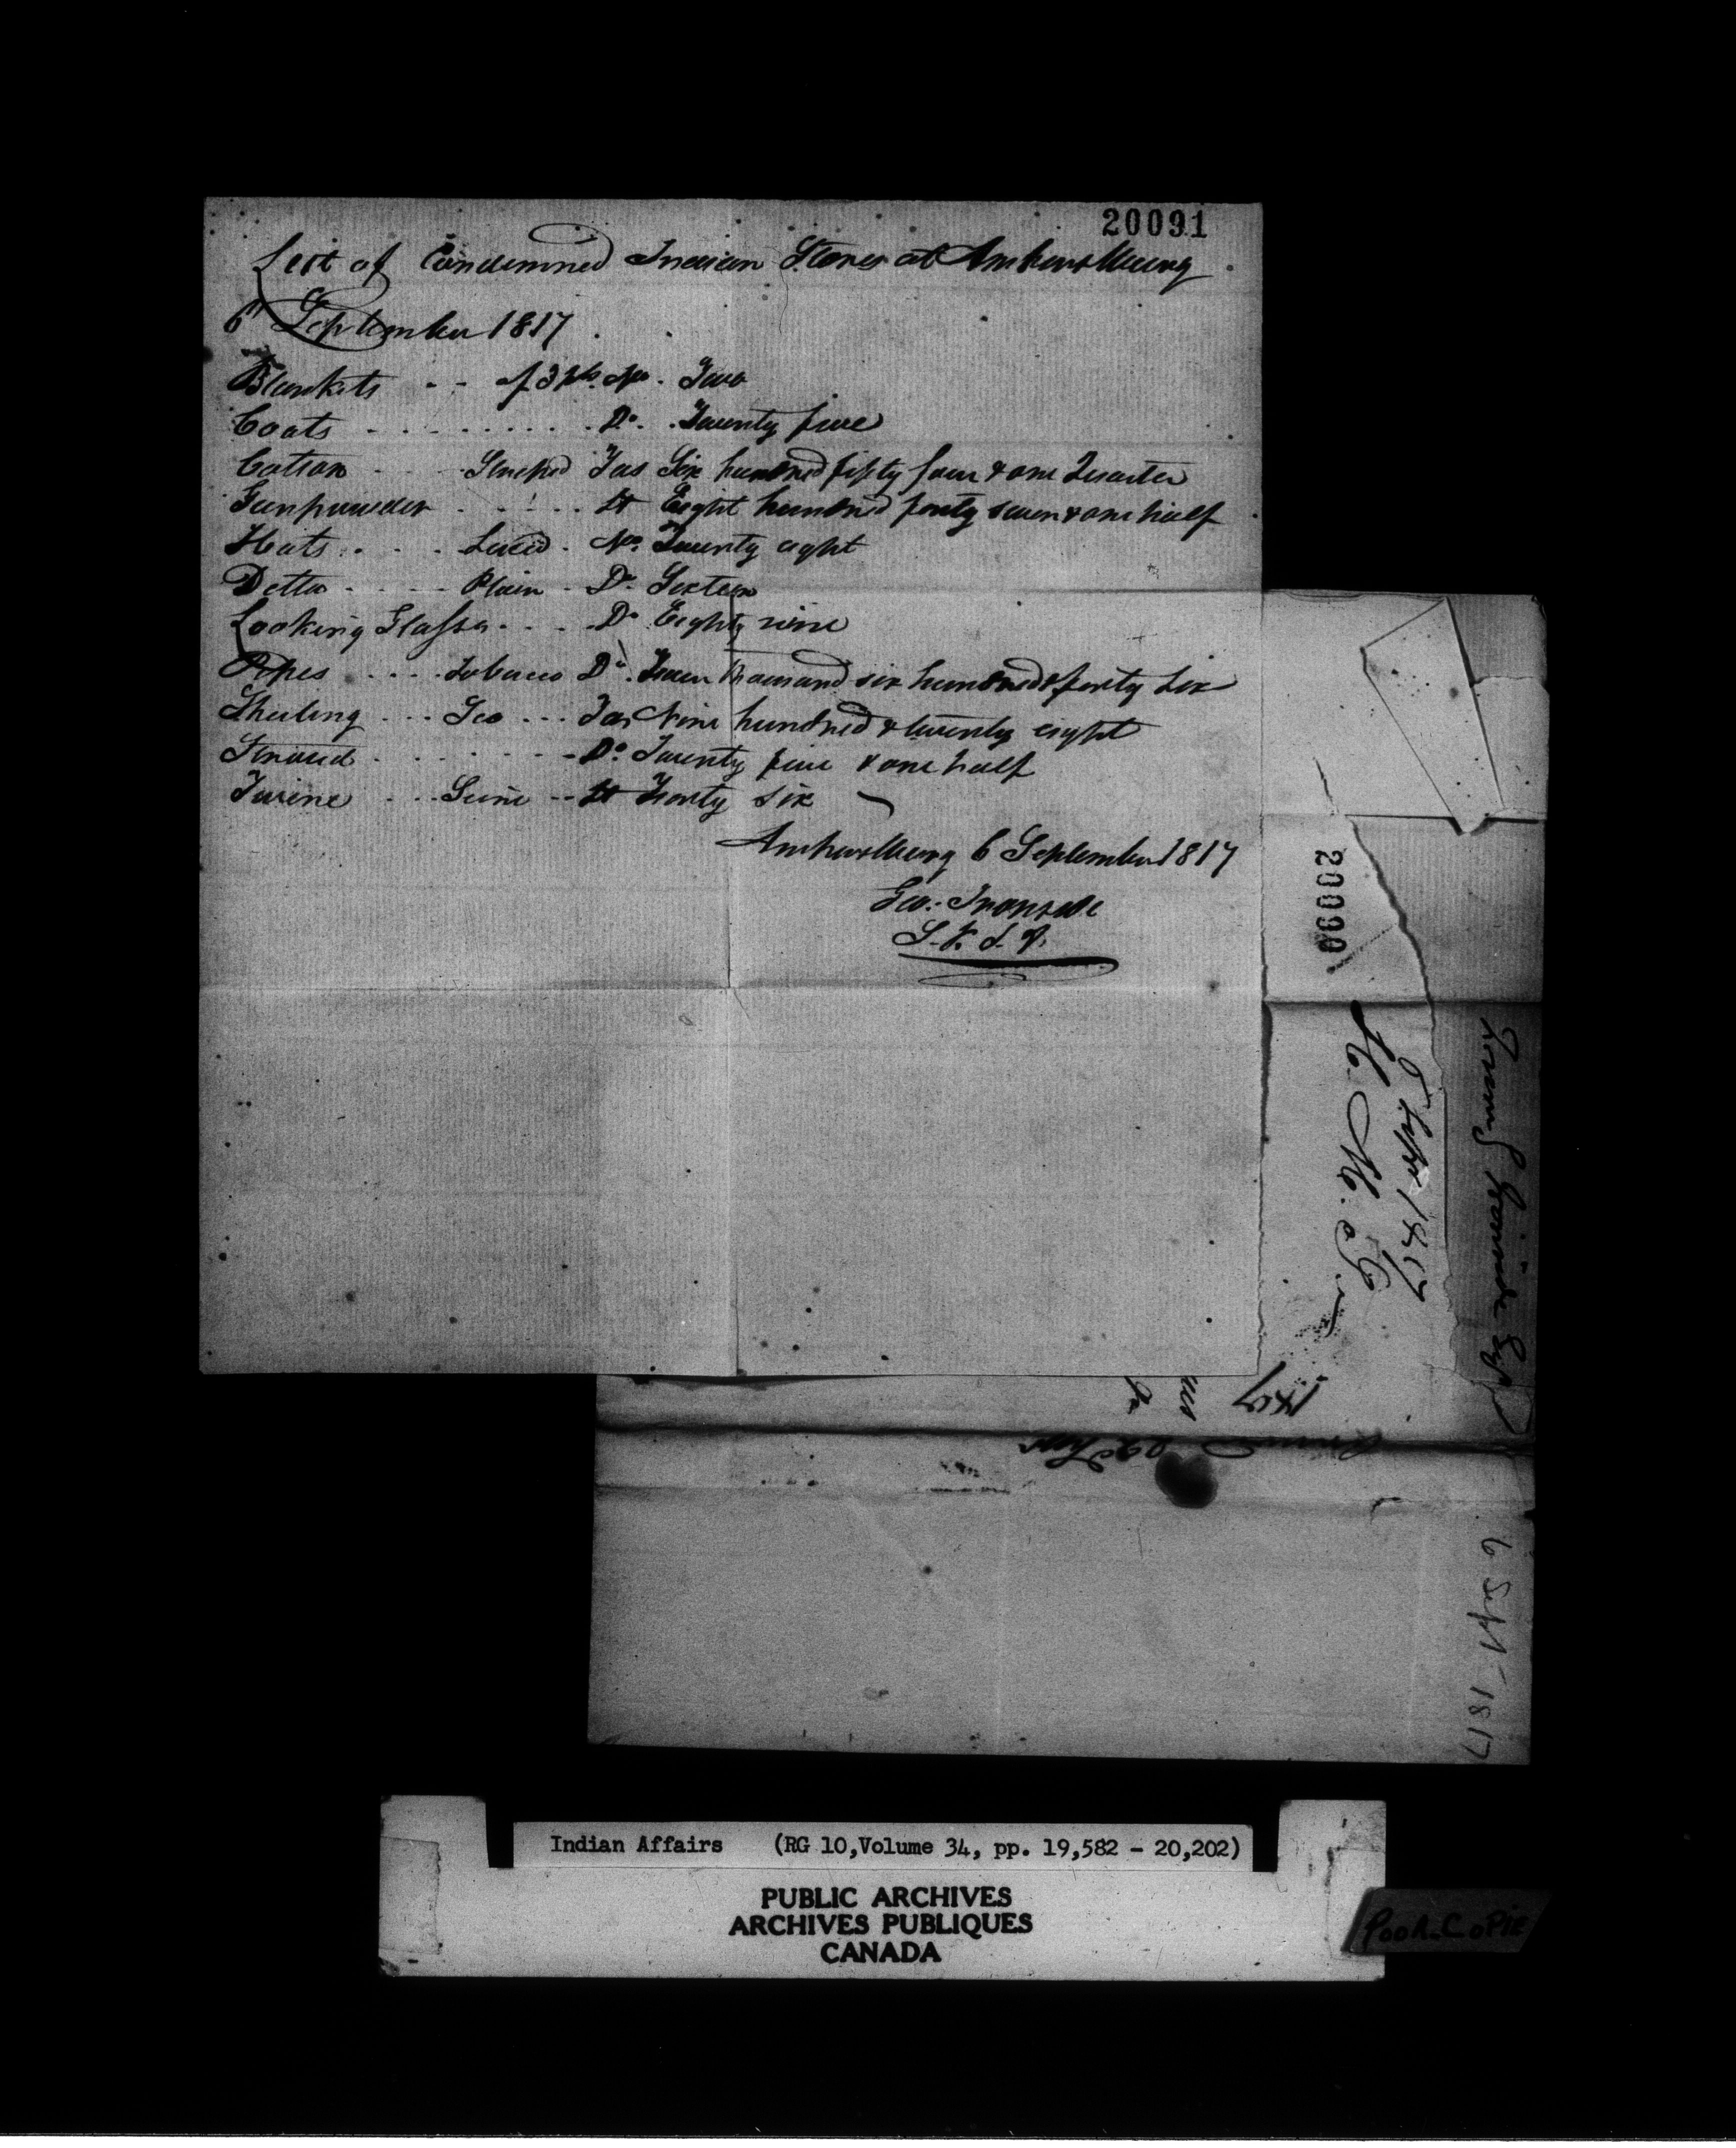 20091
List of Condemned Indian Stores at Amherstburg
6 September 1817
Blankets - - of 3 pts. No. Two
Coats - - - - Do. Twenty five
Cotton - - - Striped Yds Six hundred fifty four & one Quarter
Gunpowder - - - - lb Eight hundred forty seven & one half
Hats - - - Laced - No. Twenty eight
Ditto - - - Plain - Do. Sixteen
Looking Glasses - - - Do. Eighty nine
Pipes - - - Tobacco Do. thousand six hundred & forty six
Sheeting - - - - - - Yds Nine hundred & twenty eight
Stroud - - - - - Do. Twenty five & one half
Twine - - - Seine - - lb Forty six
Amherstburg 6 September 1817
Geo: Ironside
S. K. I. D.
20090
1817
6 Sept - 1817
Indian Affairs (RG 10, Volume 34, pp. 19,582 - 20,202)
PUBLIC ARCHIVES
ARCHIVES PUBLIQUES
CANADA
Poor Copie